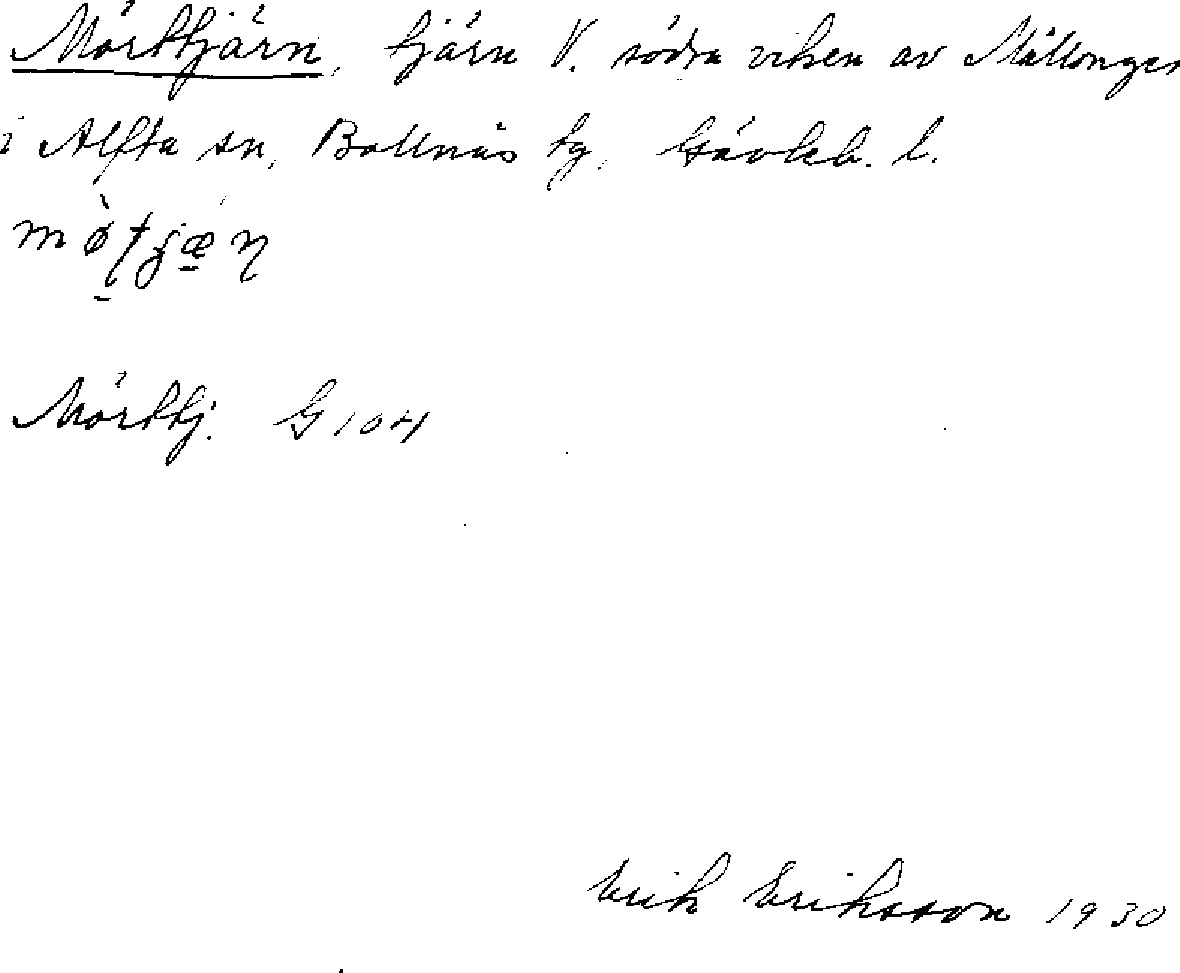 Mörttjärn, tjärn V. södra viken av Mållånges
i Alfta sn, Bollnäs tg, Gävleb. l.
Mörttj. G 104
Erik Eriksson 1930